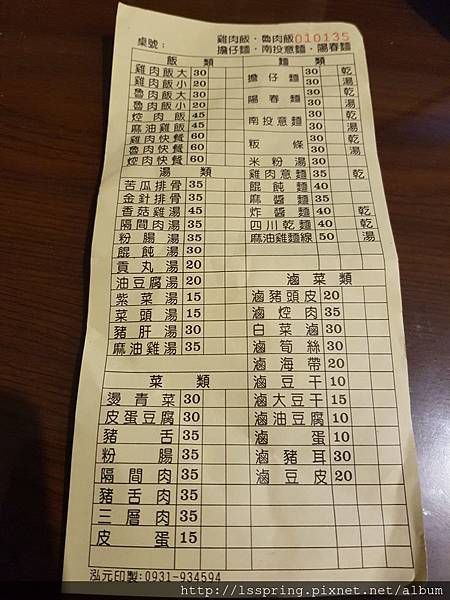 桌號：
雞肉飯．魯肉飯 010135
擔仔麵．南投意麵．陽春麵
飯 類
雞肉飯大 30
雞肉飯小 20
魯肉飯大 30
魯肉飯小 20
焢肉飯 45
麻油雞飯 45
雞肉快餐 60
魯肉快餐 60
焢肉快餐 60
湯 類
苦瓜排骨 35
金針排骨 35
香菇雞湯 45
隔間肉湯 35
粉腸湯 35
餛飩湯 30
貢丸湯 20
油豆腐湯 20
紫菜湯 15
菜頭湯 15
豬肝湯 30
麻油雞湯 35
菜 類
燙青菜 30
皮蛋豆腐 30
豬舌 35
粉腸 35
隔間肉 35
豬舌肉 35
三層肉 35
皮蛋 15
麵 類
擔仔麵 30 乾
30 湯
陽春麵 30 乾
30 湯
南投意麵 30 乾
30 湯
粄條 30 乾
30 湯
米粉湯 30
雞肉意麵 35 乾
餛飩麵 40
麻醬麵 35
炸醬麵 40 乾
四川乾麵 40 乾
麻油雞麵線 50 湯
滷菜類
滷豬頭皮 20
滷焢肉 35
白菜滷 30
滷筍絲 30
滷海帶 20
滷豆干 10
滷大豆干 15
滷油豆腐 10
滷蛋 10
滷豬耳 30
滷豆皮 20
泓元印製:0931-934594
http://lsspring.pixnet.net/album